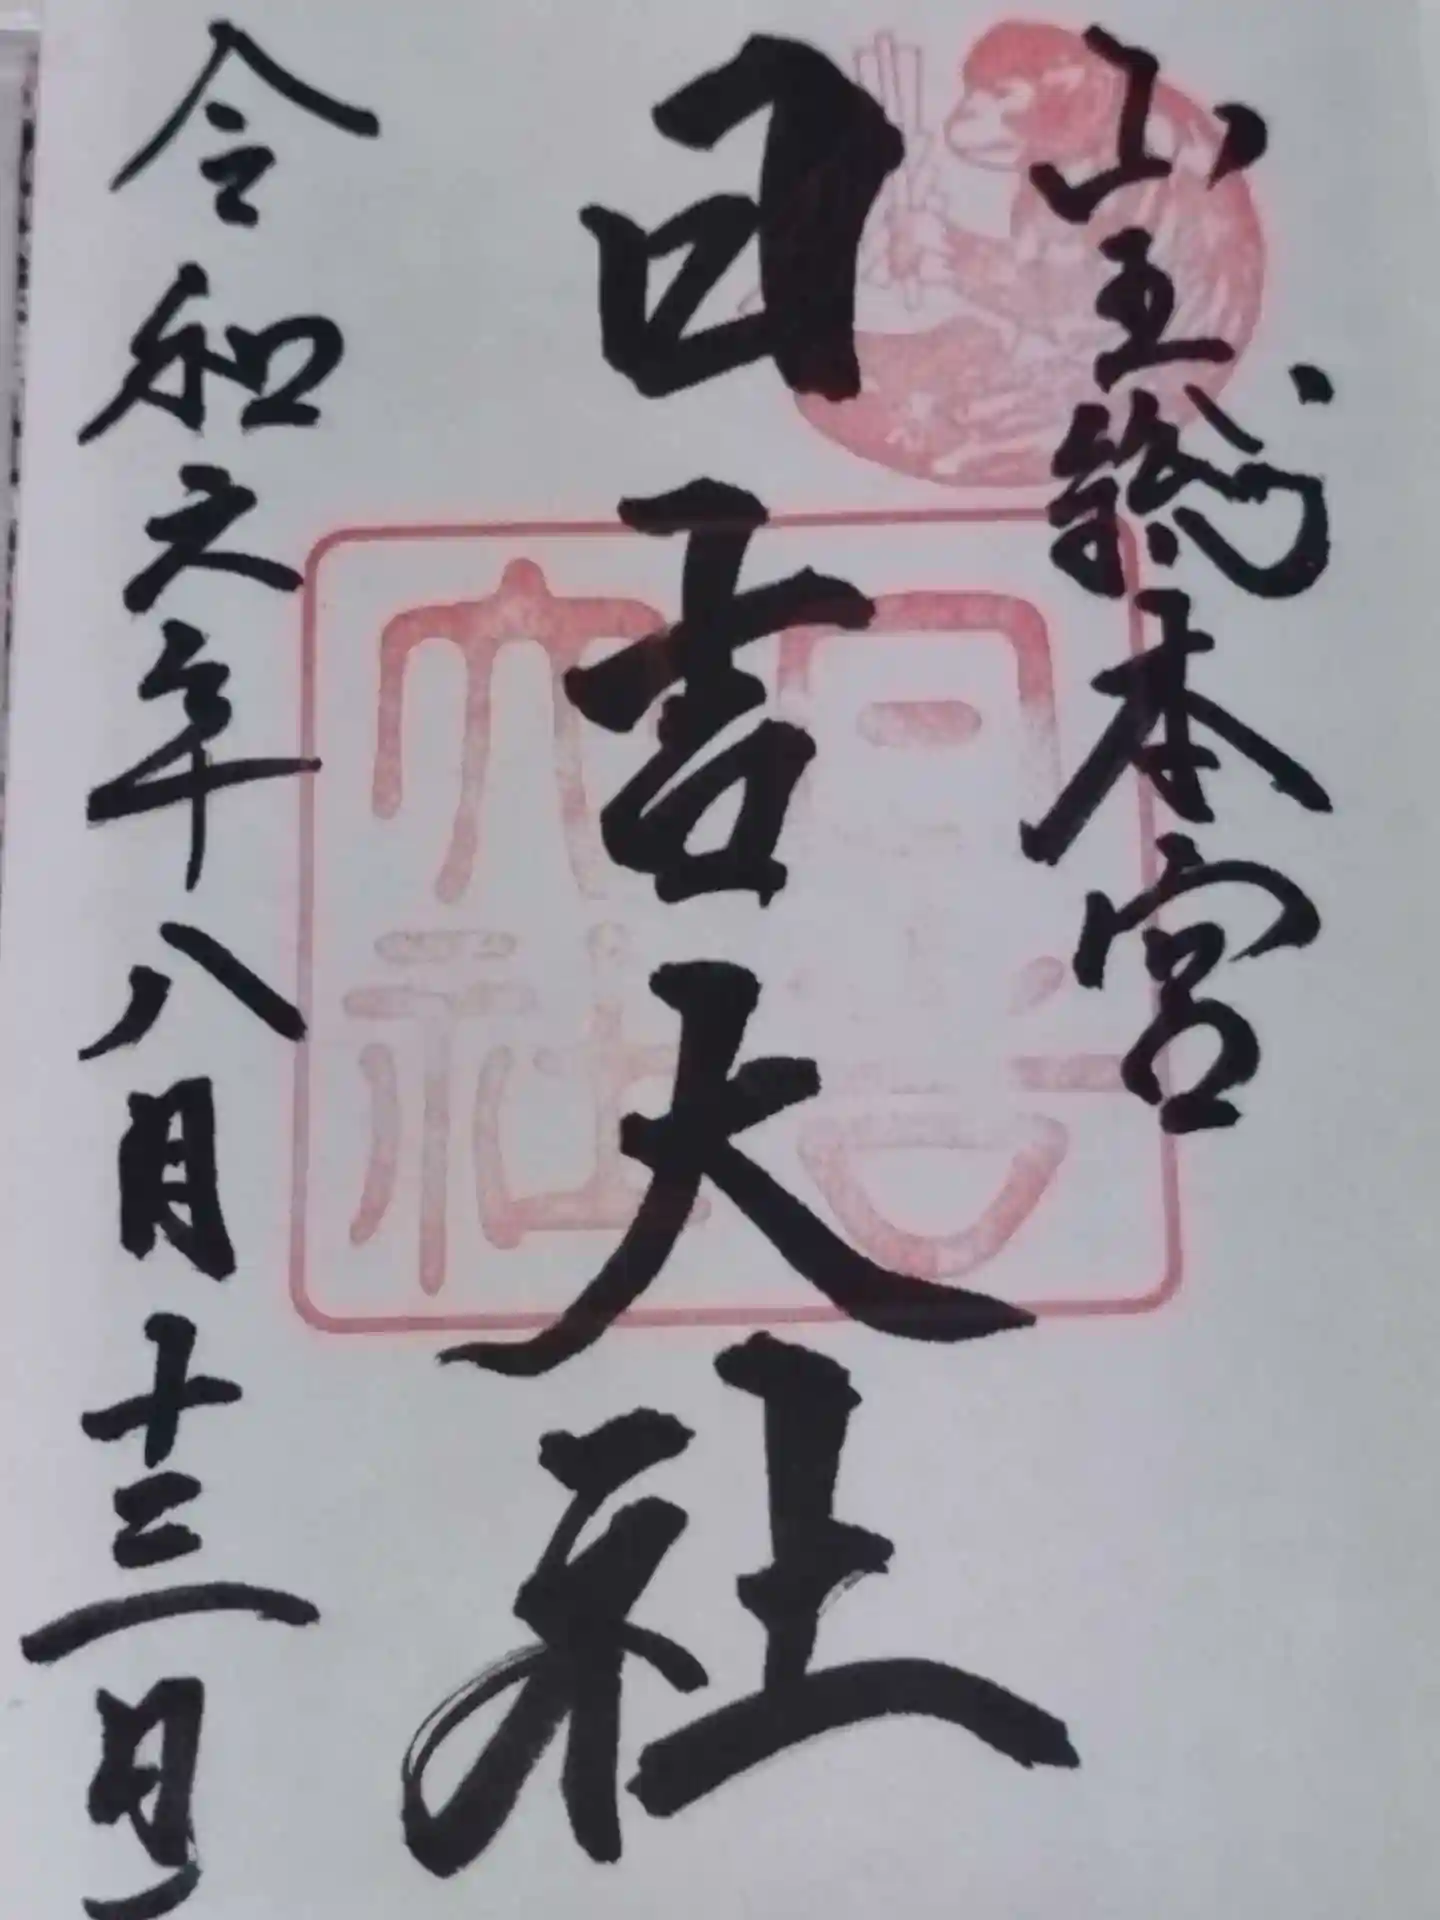 山王総本宮
日吉大社
令和六年八月十三日
日吉
大社